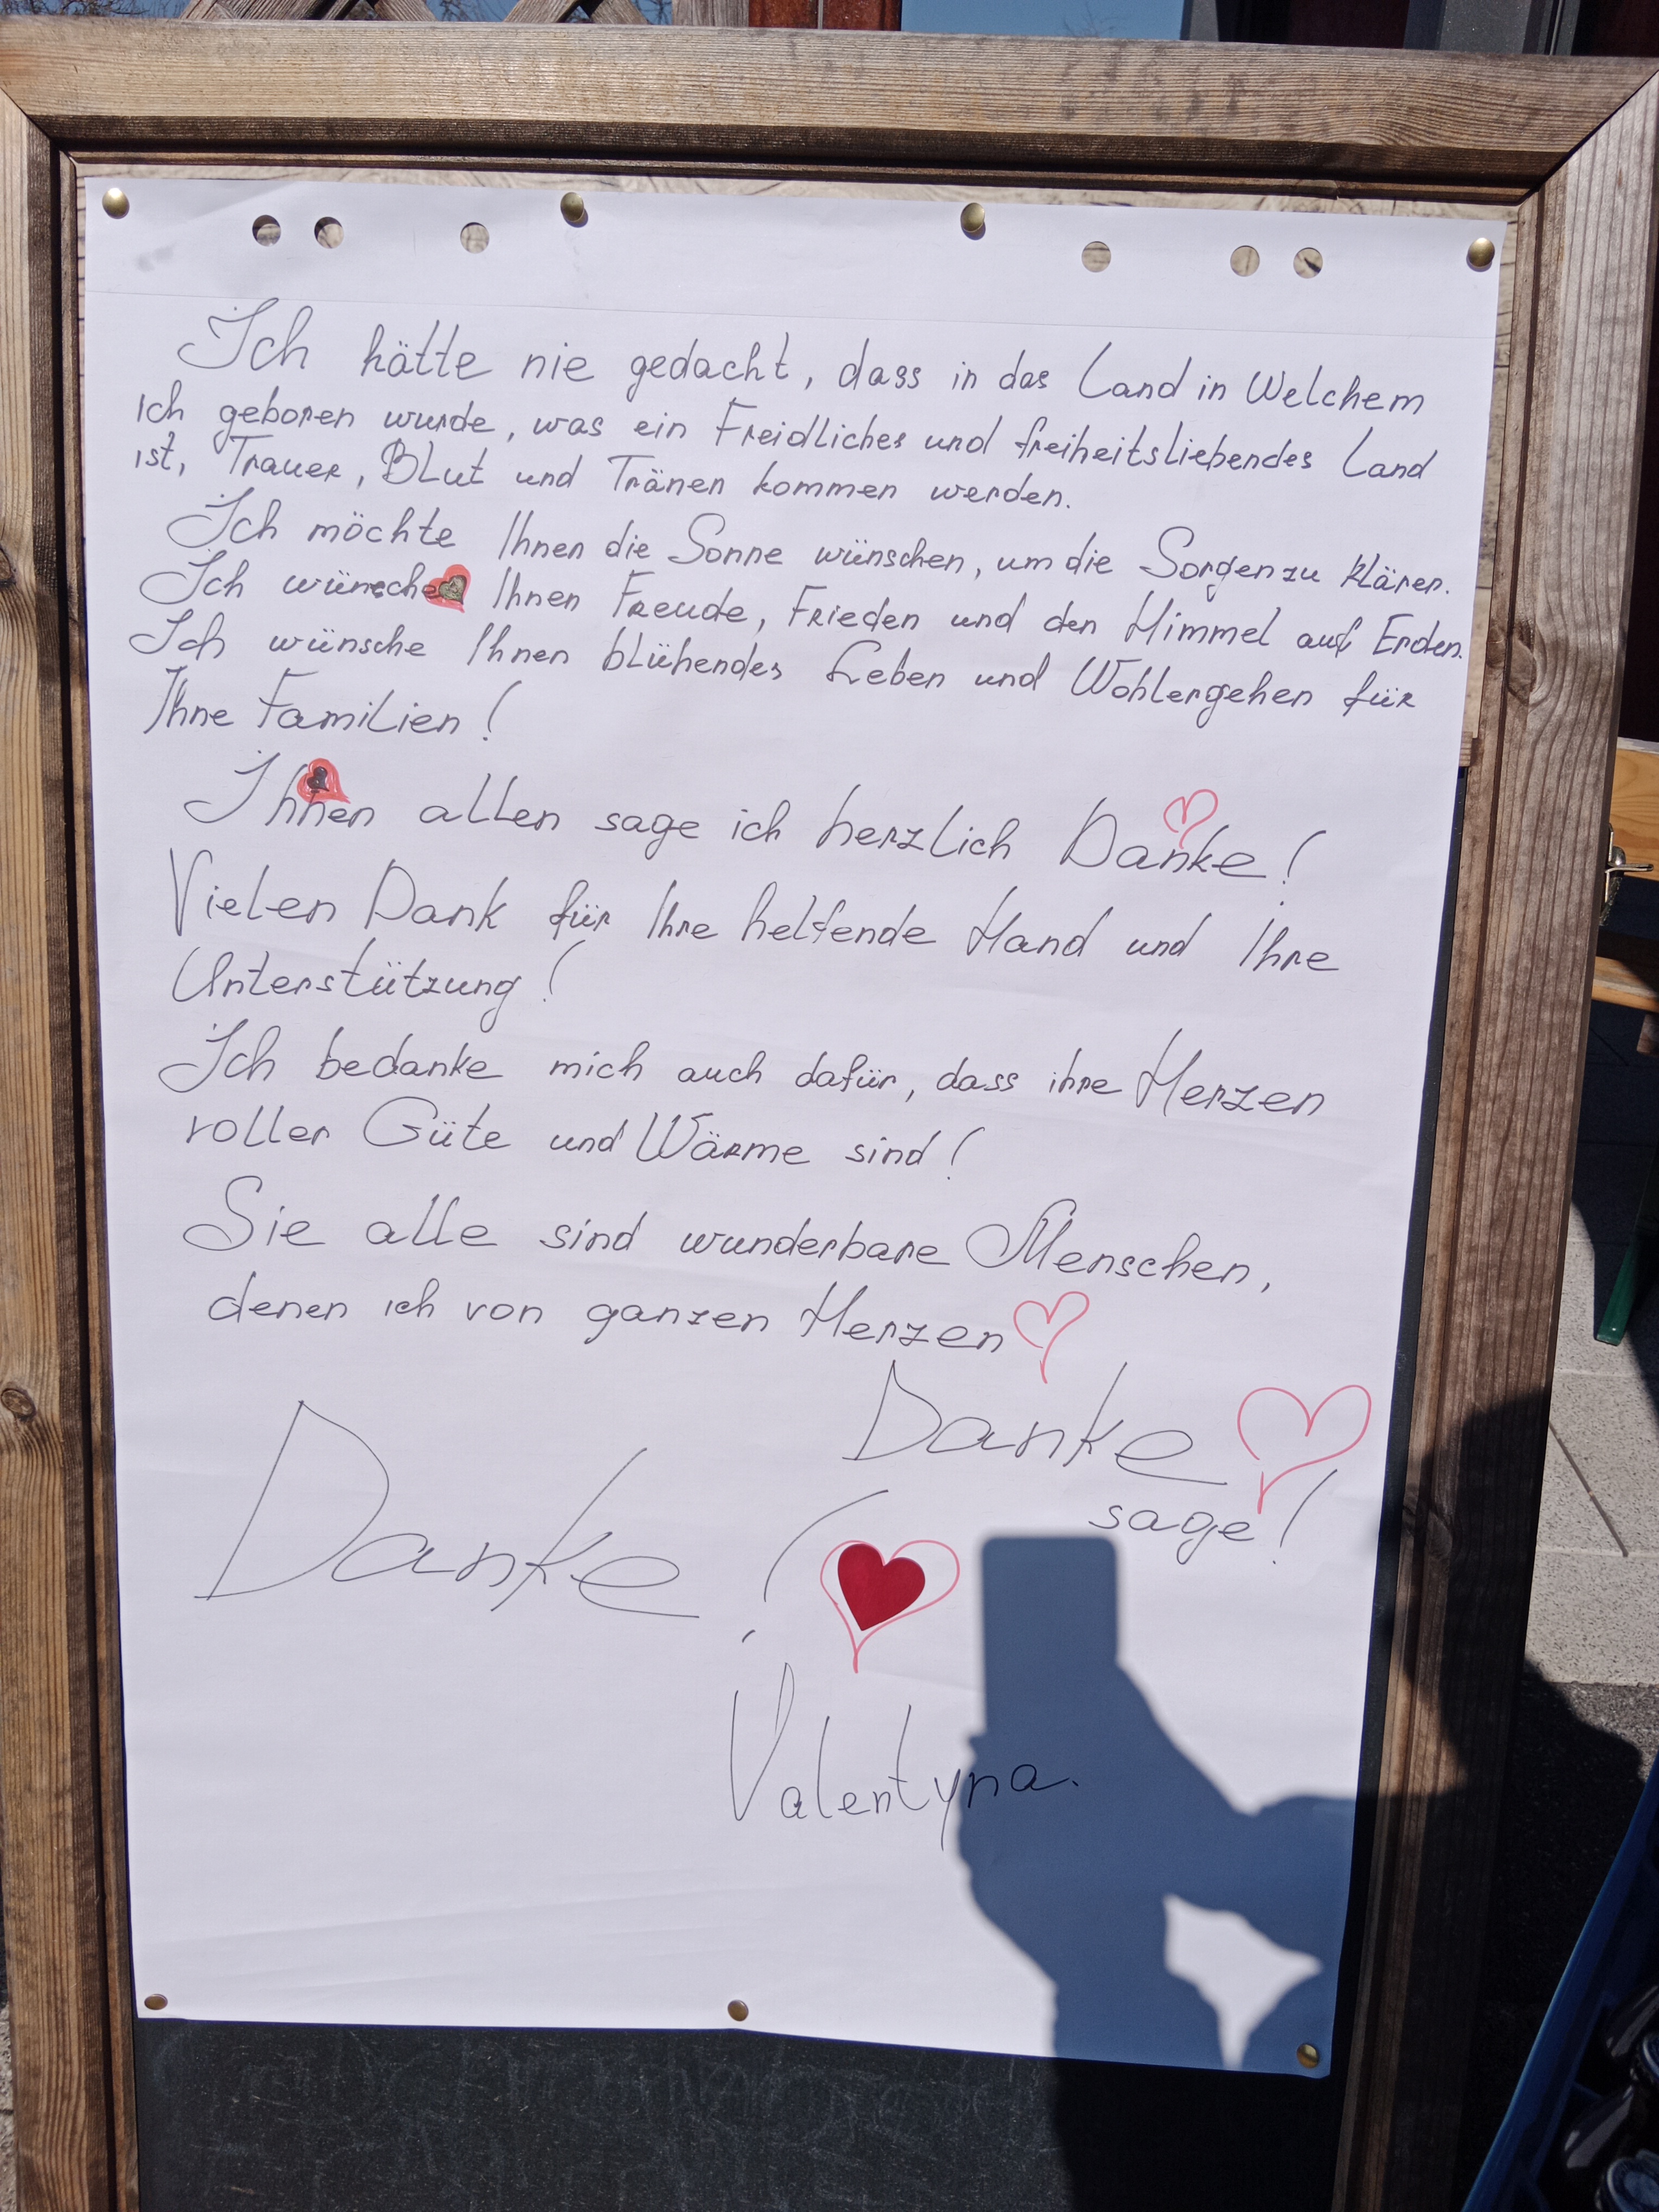 Ich hätte nie gedacht, dass in das Land in Welchem
ich geboren wurde, was ein Freidliches und freiheitsliebendes Land
ist, Trauer, Blut und Tränen kommen werden.
Ich möchte Ihnen die Sonne wünschen, um die Sorgen zu klären.
Ich wünsche Ihnen Freude, Frieden und den Himmel auf Erden.
Ich wünsche Ihnen blühendes Leben und Wohlergehen für
Ihne Familien!
Ihnen allen sage ich herzlich Danke!
Vielen Dank für Ihre helfende Hand und Ihre
Unterstützung!
Ich bedanke mich auch dafür, dass ihre Herzen
voller Güte und Wärme sind!
Sie alle sind wunderbare Menschen,
denen ich von ganzen Herzen
Danke
sage!
Danke!
Valentyna.